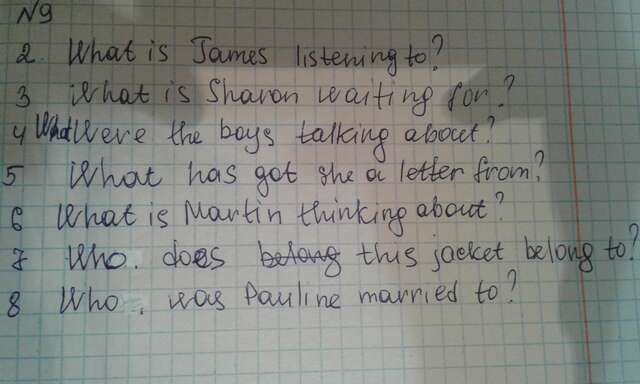 N9
2. What is James listening to?
3 What is Sharon waiting for?
4 What were the boys talking about?
5 What has got she a letter from?
6 What is Martin thinking about?
7 Who does belong this jacket belong to?
8 Who was Pauline married to?